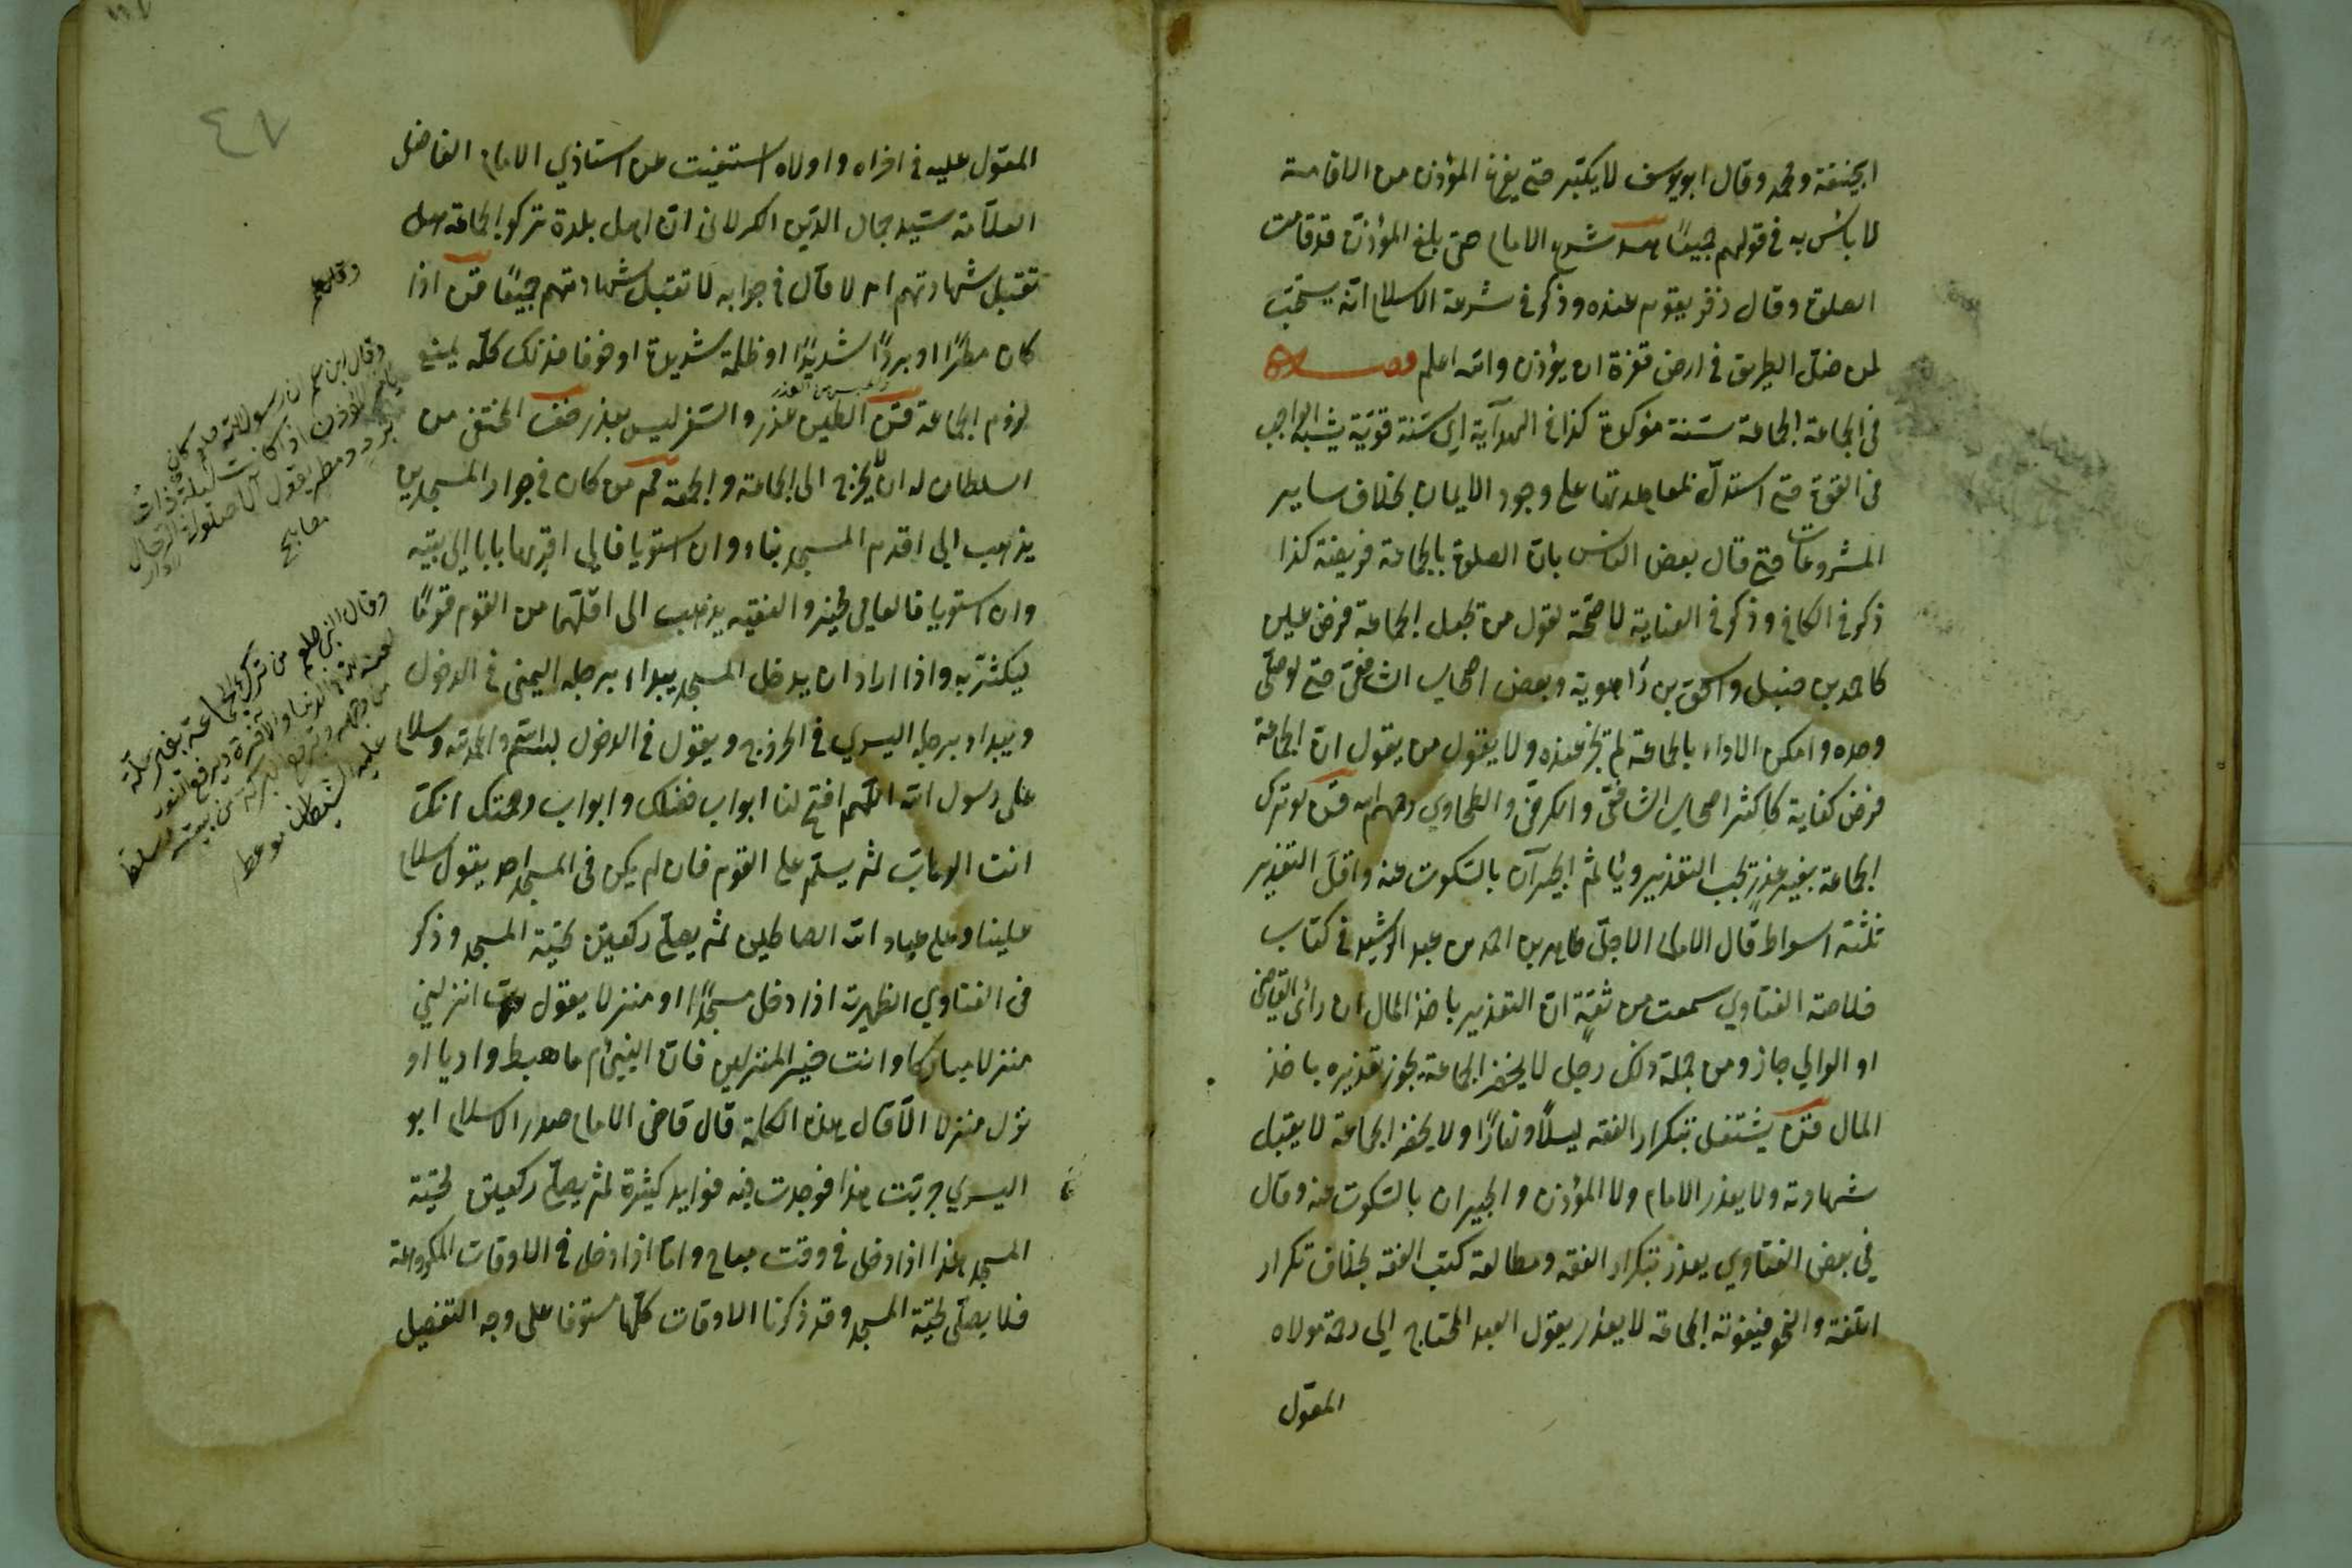 ابيحنيفة ومحمد وقال ابو يوسف لا يكبّر حتى يفرغ المؤذن من الاقامة
لا بأس به في قولهم جميعًا شرع الامام حتى بلغ المؤذن قد قامت
الصلوة وقال زفر يقوم عنده وذكر في شرعة الاسلام انّه يستحب
لمن ضلّ الطريق في ارض قفرة ان يؤذن والله اعلم فصل
في الجماعة الجماعة سنة مؤكدة كذا في الهدآية اي سنة قويّة يشبه الواجب
في القوة حتى استدلّ بمعاهدتها على وجود الايمان بخلاف ساير
المشروعات حتى قال بعض الناس بان الصلوة بالجماعة فريضة كذا
ذكر في الكافي وذكر في العناية لا صحّة لقول من يجعل الجماعة فرض عين
كاحمد بن حنبل واسحق بن راهوية وبعض اصحاب الشافعيّ حتى لو صلّى
وحده وامكن الاداء بالجماعة لم يجز عنده ولا يقول من يقول انّ الجماعة
فرض كفاية كاكثر اصحاب الشافعّي والكرخيّ والطحاوي رحمهم الله لو ترك
الجماعة بغير عذر يجب التعذير ويأثم الجيرآن بالسّكوت عنه واقلّ التعذير
ثلثة اسواط قال الامام الاجلّ طاهر بن احمد بن عبد الرشيد في كتاب
خلاصة الفتاوي سمعت من ثقة انّ التعذير باخذ المال ان رأى القاضي
او الوالي جاز ومن جملة ذلك رجل لا يحضر الجماعة يجوز تعذيره باخذ
المال يشتغل بتكرار الفقه ليلاً ونهارًا ولا يحضر الجماعة لا يقبل
شهادته ولا يعذر الامام ولا المؤذن والجيران بالسّكوت عنه وقال
في بعض الفتاوي يعذر بتكرار الفقه ومطالعة كتب الفقه بخلاف تكرار
اللّغة والنحو فيفوته الجماعة لا يعذر يقول العبد المحتاج الي رحمة مولاه
المعوّل
٤٧
المعوّل عليه في اخراه واولاه استفيت عن استاذي الامام الفاضل
العلاّمة سيّد جمال الدّين الكرلاني انّ اهل بلدة تركوا الجماعة هل
تقبل شهادتهم ام لا قال في جوابه لا تقبل شهادتهم جميعًا اذا
كان مطرًا او بردًا شديدًا او ظلمة شديدة او خوفا فذلك كلّه يمنع
لزوم الجماعة الطين عذر والسّفر ليس بعذر المختفي من
السلطان له ان لا يخرج الى الجماعة والجمعة من كان في جوار المسجدين
يذهب الى اقدم المسجد بناء وان استويا فالي اقربهما بابا الى بيته
وان استويا فالعامي يخيّر والفقيه يذهب الى اقلّهما من القوم قومًا
ليكثر به واذا اراد ان يدخل المسجد يبداء برجله اليمنى في الدخول
ويبداء برجله اليسري في الخروج ويقول في الدخول بسم الله والحمد لله وسلام
على رسول الله اللّهم افتح لنا ابواب فضلك وابواب رحمتك انك
انت الوهّاب ثم يسلّم على القوم فان لم يكن في المسجد احد يقول سلام
علينا وعلى عباد الله الصالحين ثم يصلّي ركعتين تحيّة المسجد وذكر
في الفتاوي الظهيرية اذا دخل مسجدًا او منزلا يقول ربّ انزلني
منزلا مباركا وانت خير المنزلين فانّ النبي م ما هبط واديا او
نزل منزلا الاّ قال هذه الكلمة قال قاضي الامام صدر الاسلام ابو
اليسري جرّبت هذا فوجدت فيه فوايد كثيرة ثم يصلّي ركعتين تحيّة
المسجد هذا اذا دخل في وقت مباح وامّا اذا دخل في الاوقات المكروهة
فلا يصلّي تحيّة المسجد وقد ذكرنا الاوقات كلّها مستوفا على وجه التفصيل
وقال ابن عمر ان رسول الله صلعم كان
يأمر المؤذن اذا كانت ليلة ذات
برد ومطر يقول الا صلوا في الرحال
مصابيح
وقال النبي صلعم من ترك الجماعة بغير علّة